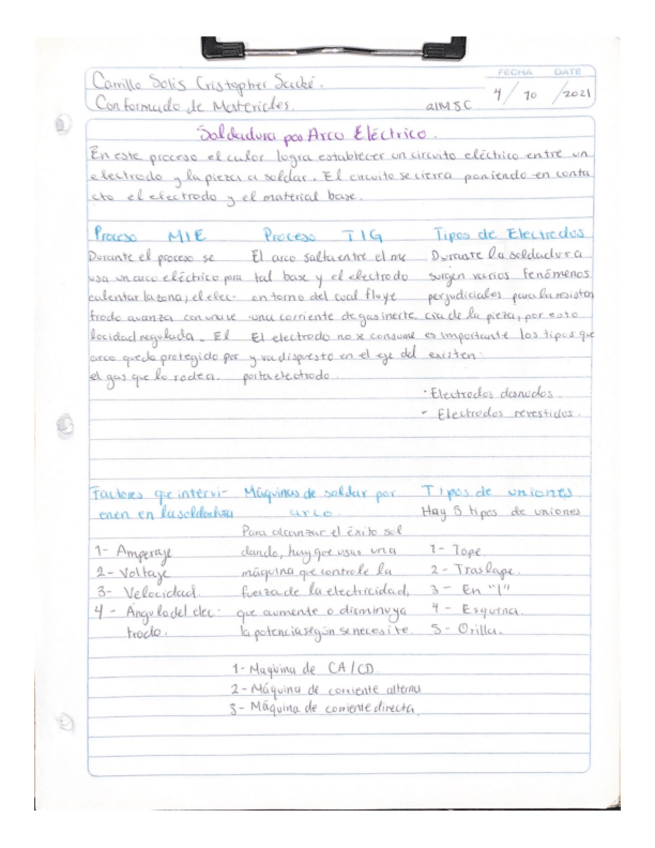 FECHA DATE
Carrillo Solis Cristopher
4/ 10 /2021
Conformado de Materiales. a1MSC
Soldadura por Arco Eléctrico.
En este proceso el calor logra establecer un circuito eléctrico entre un
electrodo y la pieza a soldar. El circuito se cierra poniendo en conta
cto el electrodo y el material base.
Proceso MIE
Durante el proceso se
usa un arco eléctrico para
calentar la zona; el elec-
trodo avanza con una ve
locidad regulada. El
arco queda protegido por
el gas que lo rodea.
Proceso TIG
El arco salta entre el me
tal base y el electrodo
en torno del cual fluye
una corriente de gas inerte.
El electrodo no se consume
y va dispuesto en el eje del
portaelectrodo.
Tipos de Electrodos
Durante la soldadura
surgen varios fenómenos
perjudiciales para la resisten
cia de la pieza, por esto
es importante los tipos que
existen:
· Electrodos desnudos.
- Electrodos revestidos.
Factores que intervi-
enen en la soldadura
1- Amperaje
2- Voltaje
3- Velocidad
4- Ángulo del elec-
trodo.
Máquinas de soldar por
arco.
Para alcanzar el éxito sol
dando, hay que usar una
máquina que controle la
fuerza de la electricidad,
que aumente o disminuya
la potencia según se necesite.
1- Maquina de CA/CD.
2- Máquina de corriente alterna
3- Máquina de corriente directa.
Tipos de uniones
Hay 5 tipos de uniones
1- Tope.
2- Traslape.
3- En "L"
4- Esquina.
5- Orilla.